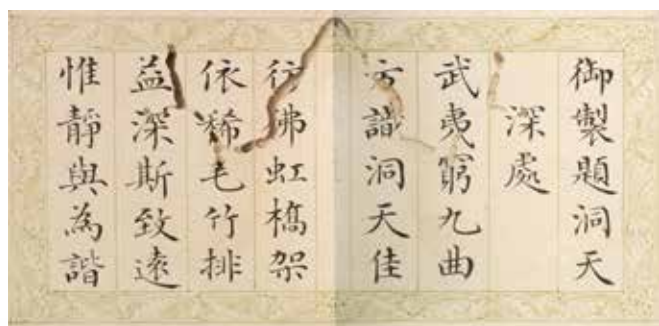 御製題洞天
深處
武夷窮九曲
方識洞天佳
彷彿虹橋架
依稀毛竹排
益深斯致遠
惟靜與為諧